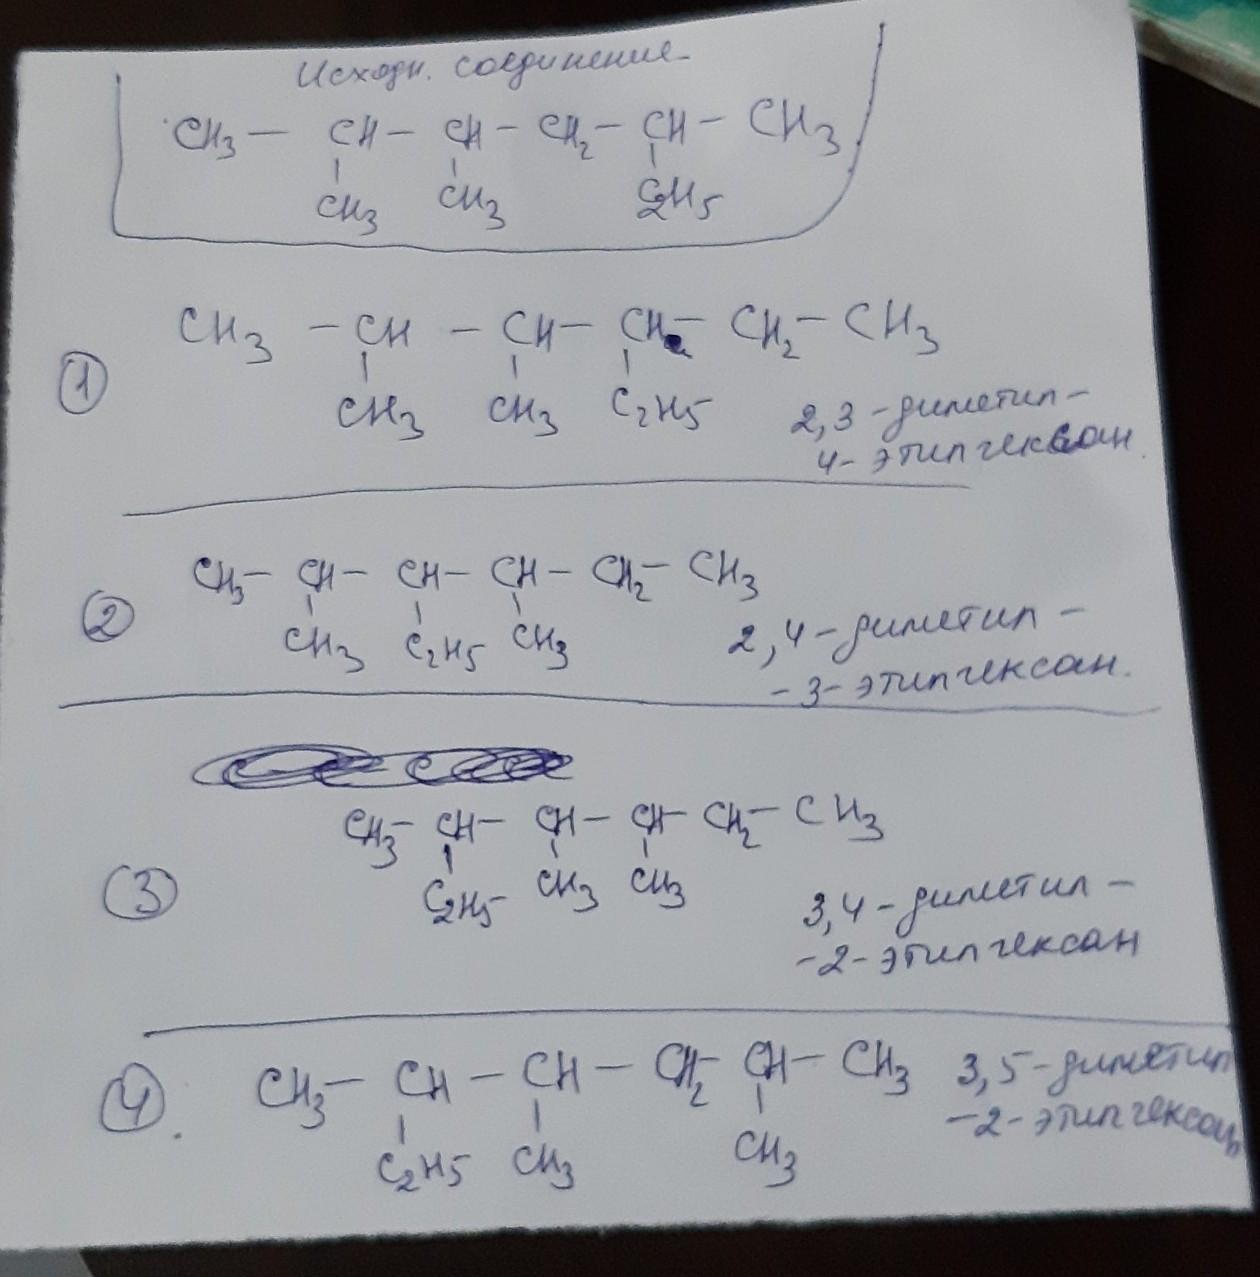 Исходн. соединение
CH3 — CH — CH — CH2 — CH — CH3
CH3 CH3 C2H5
1
CH3 — CH — CH — CH — CH2 — CH3
CH3 CH3 C2H5
2,3-диметил-
4-этилгексан
2
CH3 — CH — CH — CH — CH2 — CH3
CH3 C2H5 CH3
2,4-диметил-
-3-этилгексан.
3
CH3 — CH — CH — CH — CH2 — CH3
C2H5 CH3 CH3
3,4-диметил-
-2-этилгексан
4.
CH3 — CH — CH — CH2 — CH — CH3
C2H5 CH3 CH3
3,5-диметил
-2-этилгексан